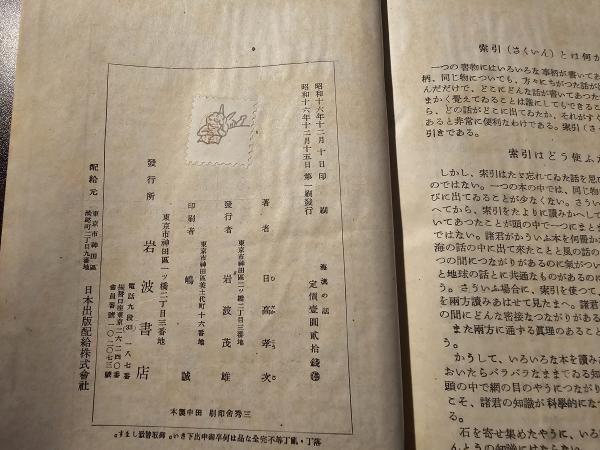 昭和十六年十二月十日印刷
昭和十六年十二月十五日第一刷發行
海流の話
定價壹圓貳拾錢
著者 日高孝次
東京市神田區一ッ橋二丁目三番地
發行者 岩波茂雄
東京市神田區美土代町十六番地
印刷者 嶋 誠
東京市神田區一ッ橋二丁目三番地
發行所 岩波書店
電話九段(33)一八七番
振替口座東京二六二四〇番
會員番號一〇二〇七三號
東京市神田區
淡路町二丁目九番地
配給元 日本出版配給株式會社
三秀舍印刷 田中製本
落丁・亂丁等不完全な品は何卒御申出下さい。御取替致します。
索引(さくいん)とは何か
一つの書物にはいろいろな事柄が書いてあ
柄、同じ物についても、方々にちがつた話が出
んだだけで、どこにどんな話が書いてあつた
まかく覺えてゐることは誰にしてもできること
ら、どの話がどこに出てゐたか、それがすぐ
あると非常に便利なわけである。索引(さく
引きである。
索引はどう使ふか
しかし、索引はたゞ忘れてゐた話を思ひ
のではない。一つの本の中では、同じ物
びに出てゐることが少くない。さうい
へてから、索引をたよりに讀みかへして
いてあつたことが頭の中で一つにまとま
ではない。諸君がかういふ本を何册か
海の話の中に出て來たことと風の話の
つの間につながりがあるのに氣がつい
と地球の話とに共通なものがあるのに
う。さういふ場合に、索引を使つて、
を兩方讀みあはせて見たまへ。諸君
の間にどんな密接なつながりがある
また兩方に通ずる眞理のあること
う。
かうして、いろいろな本を讀みあ
おいたらバラバラなままでゐる知
頭の中で網の目のやうにつながり
こそ、諸君の知識が科學的になつ
る。
石を寄せ集めたやうに、いろ
んとうの知識にはならない。